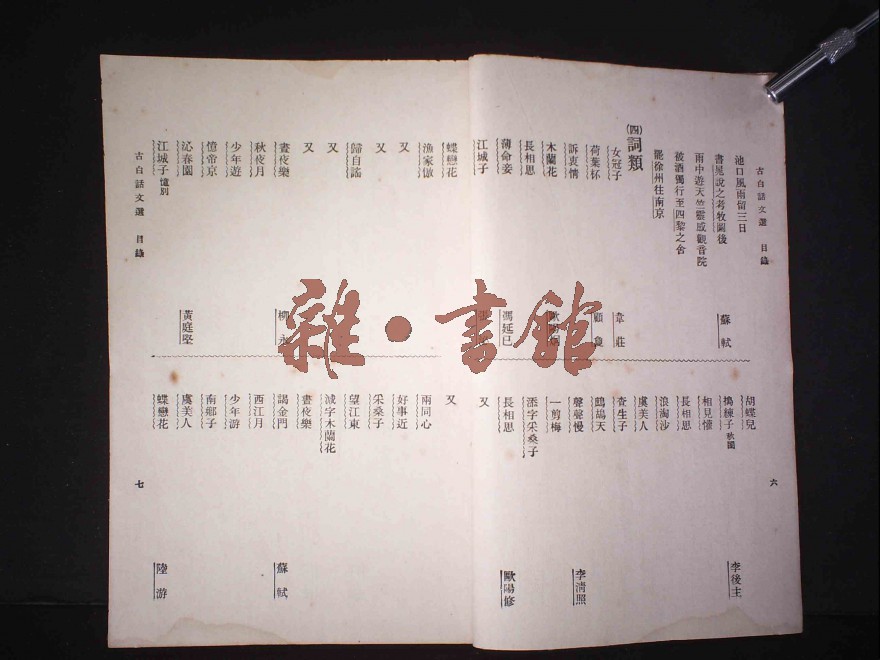 古白話文選 目錄
池口風雨留三日
書晁說之考牧圖後 蘇軾
雨中遊天竺靈感觀音院
被酒獨行至四黎之舍
罷徐州往南京
(四)詞類
女冠子 韋莊
荷葉杯 顧敻
訴衷情
木蘭花
長相思
薄命妾 馮延巳
江城子
胡蝶兒
搗練子 秋閨 李後主
相見懽
長相思
浪淘沙
虞美人
查生子
鷓鴣天
聲聲慢 李清照
一剪梅
添字采桑子
長相思 歐陽修
又
六
蝶戀花
漁家傲
又
又
歸自謠
又
又
晝夜樂 柳永
秋夜月
少年遊
憶帝京
沁春園 黃庭堅
江城子 憶別
又
兩同心
好事近
采桑子
望江東
減字木蘭花
晝夜樂
謁金門 蘇軾
西江月
少年游
南鄉子
虞美人
蝶戀花 陸游
古白話文選 目錄
七
雜·書館